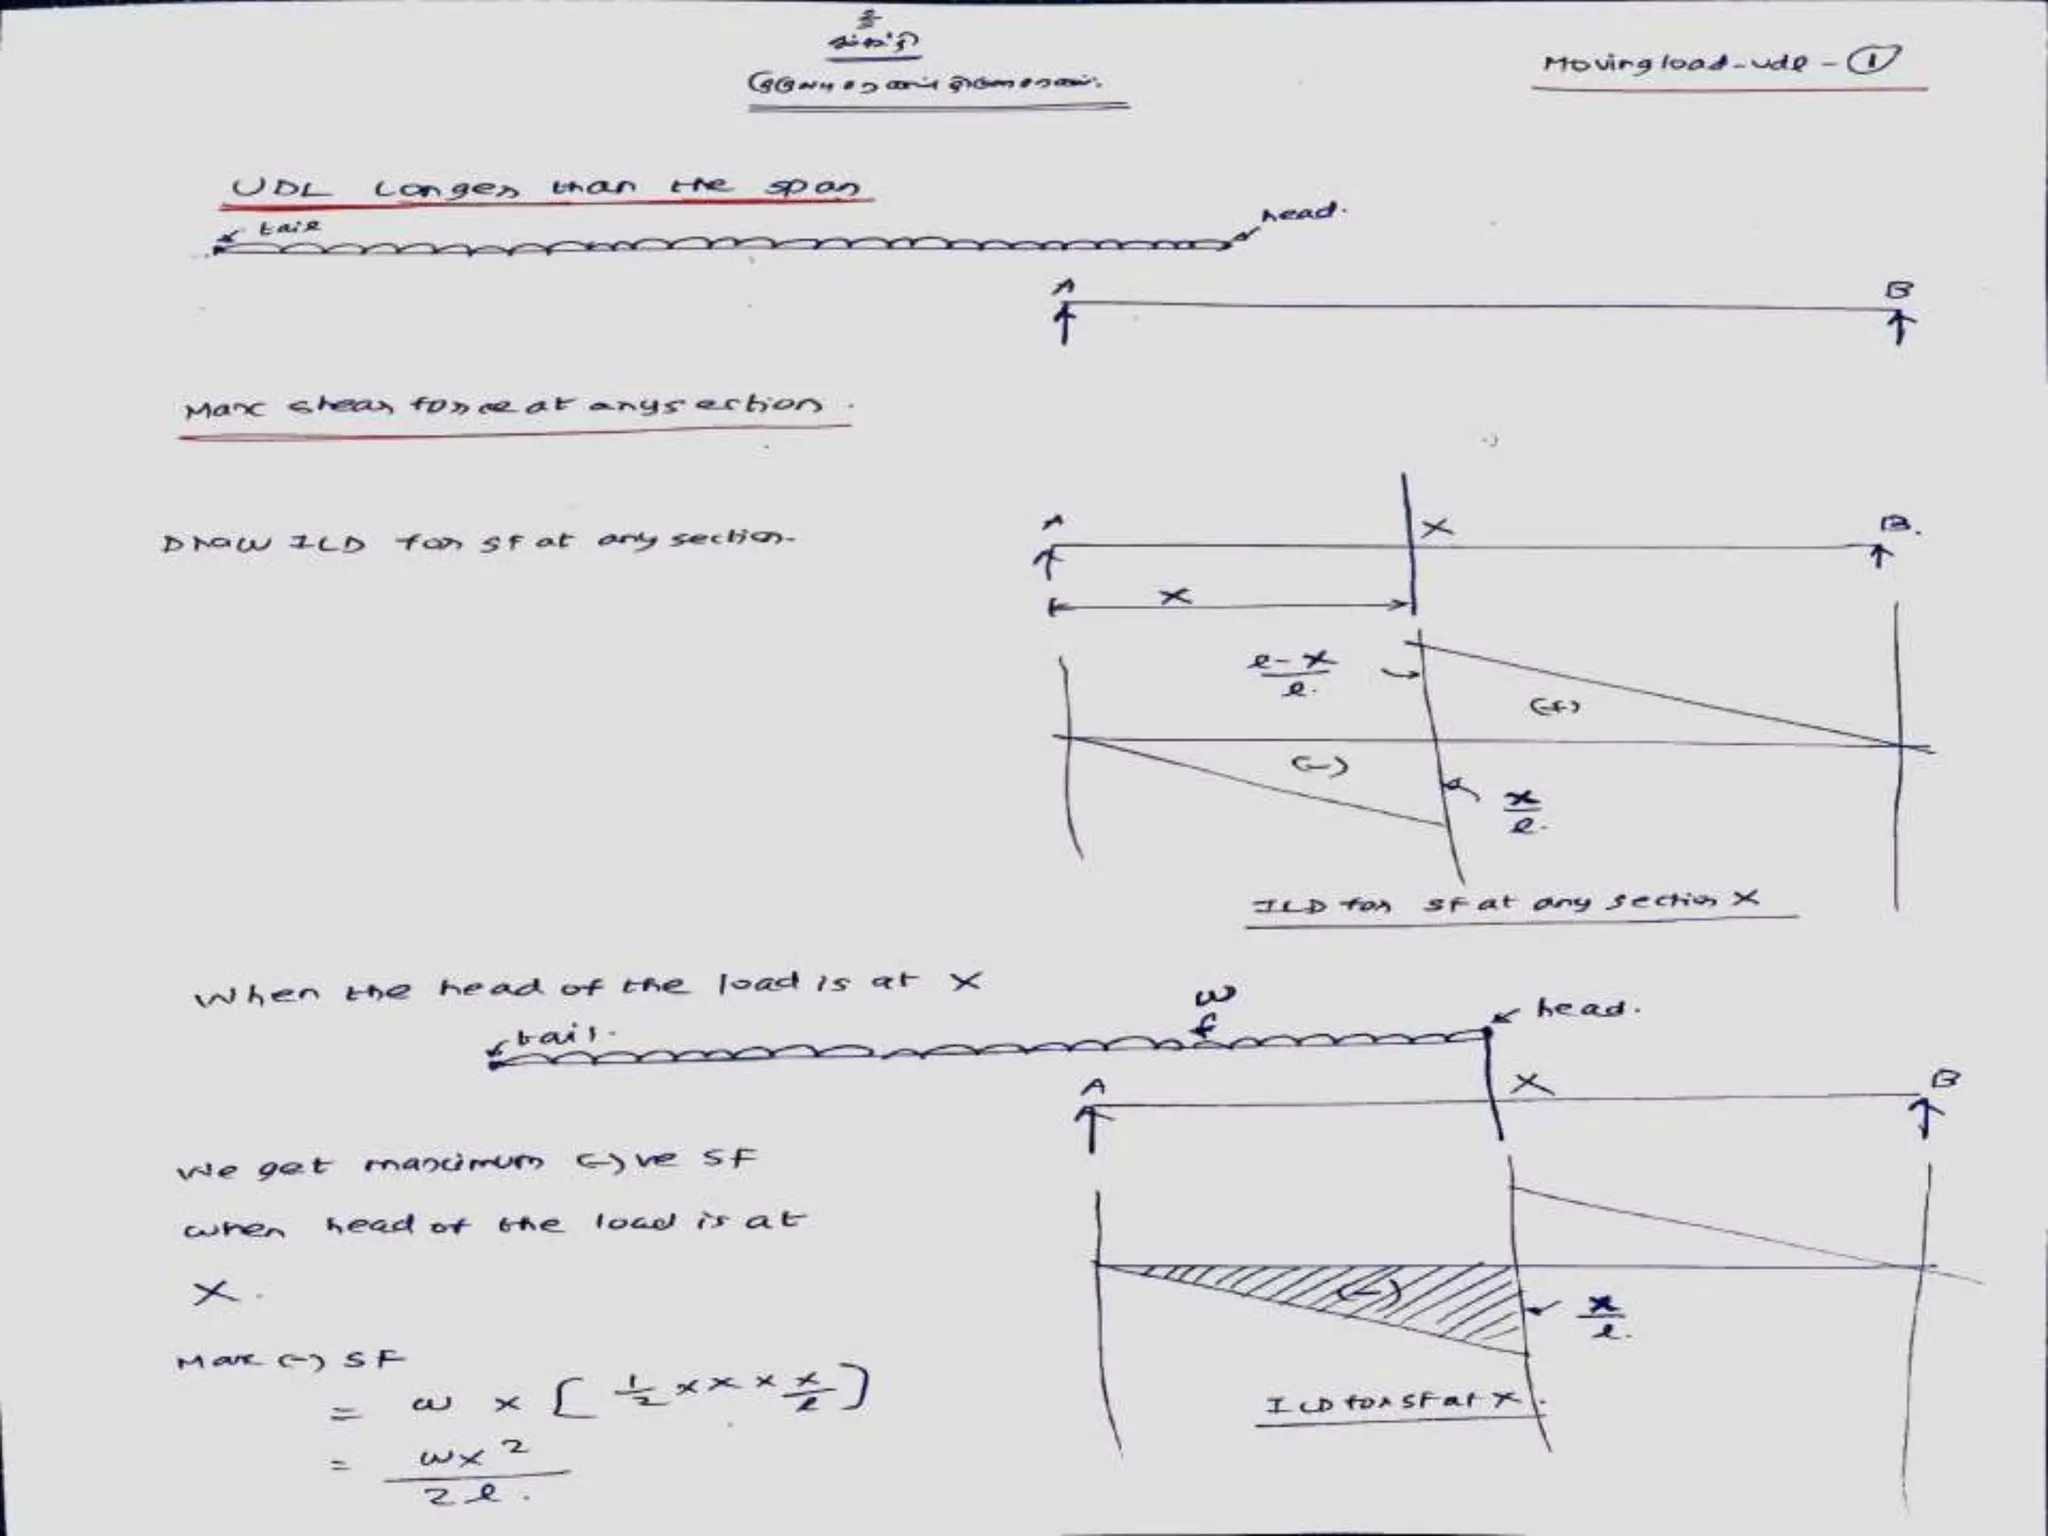 Moving load - udl - ①
UDL Longer than the span
tail
head.
A
B
Max shear force at any section.
Draw ILD for SF at any section.
A
X
B.
x
l-x
l.
(+)
(-)
x
l.
ILD for SF at any section X
When the head of the load is at X
w
head.
tail.
A
X
B
We get maximum (-)ve SF
when head of the load is at
X.
(-)
x
l.
Max (-) SF
= w × [ 1/2 × x × x/l ]
ILD for SF at X.
= wx²
2l.